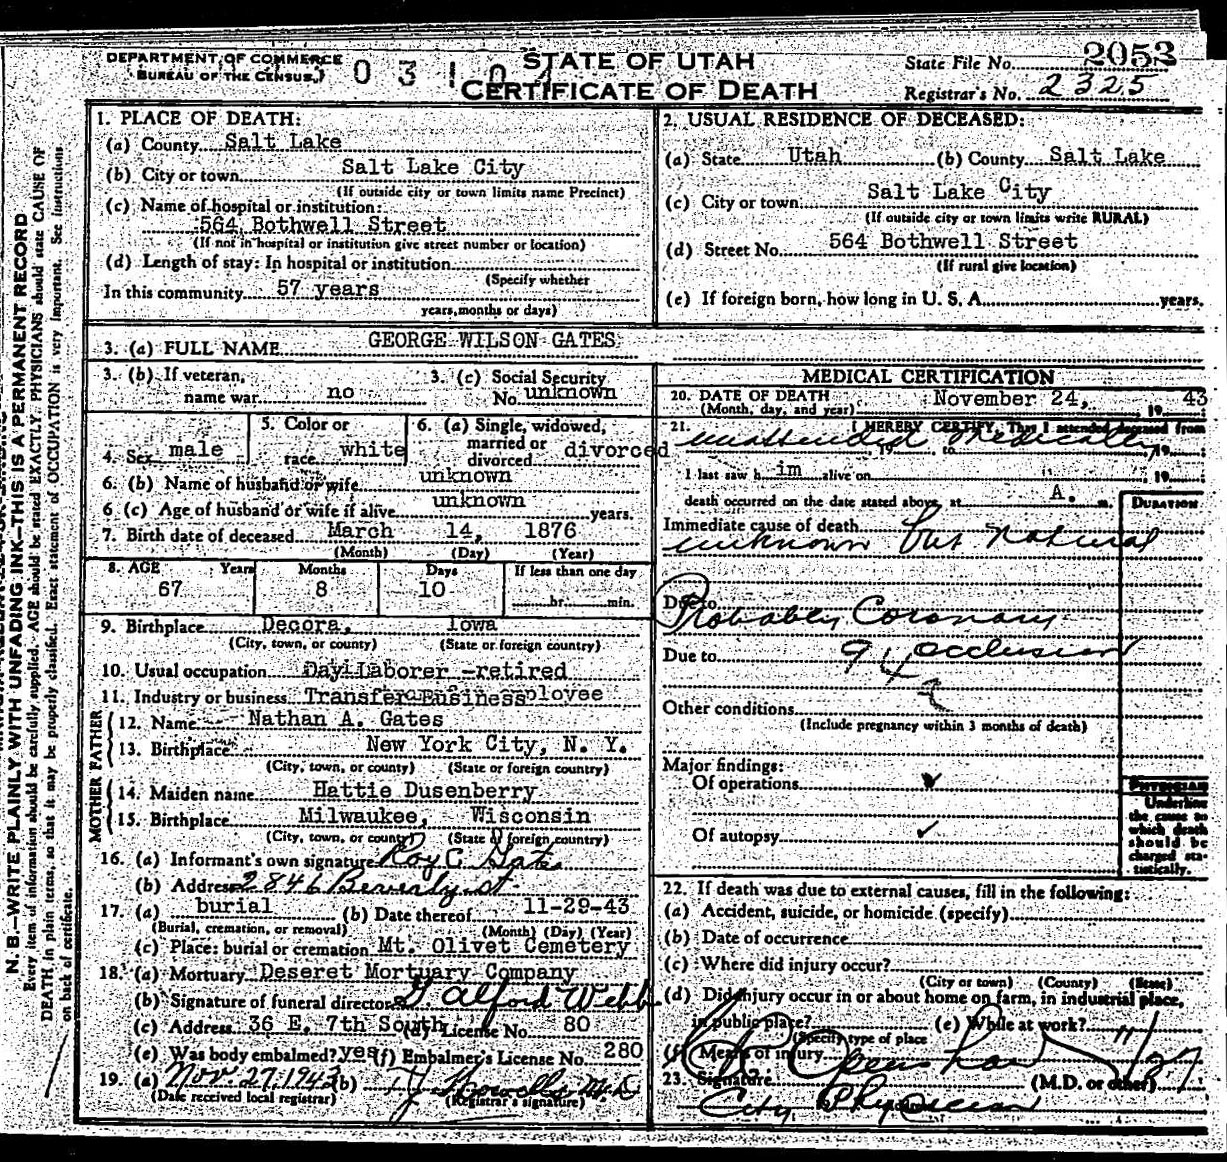 DEPARTMENT OF COMMERCE
BUREAU OF THE CENSUS
0 3 1 0
STATE OF UTAH
CERTIFICATE OF DEATH
State File No. 2053
Registrar's No. 2325
N. B.—WRITE PLAINLY WITH UNFADING INK—THIS IS A PERMANENT RECORD
Every item of information should be carefully supplied. AGE should be stated EXACTLY. PHYSICIANS should state CAUSE OF
DEATH in plain terms, so that it may be properly classified. Exact statement of OCCUPATION is very important. See instructions
on back of certificate.
1. PLACE OF DEATH:
(a) County Salt Lake
(b) City or town Salt Lake City
(If outside city or town limits name Precinct)
(c) Name of hospital or institution:
564 Bothwell Street
(If not in hospital or institution give street number or location)
(d) Length of stay: In hospital or institution
(Specify whether
In this community 57 years
years, months or days)
2. USUAL RESIDENCE OF DECEASED:
(a) State Utah (b) County Salt Lake
(c) City or town Salt Lake City
(If outside city or town limits write RURAL)
(d) Street No. 564 Bothwell Street
(If rural give location)
(e) If foreign born, how long in U. S. A. years.
3. (a) FULL NAME GEORGE WILSON GATES
3. (b) If veteran, name war no
3. (c) Social Security No. unknown
4. Sex male
5. Color or race white
6. (a) Single, widowed, married or divorced divorced
6. (b) Name of husband or wife unknown
6 (c) Age of husband or wife if alive unknown years.
7. Birth date of deceased March 14, 1876
(Month) (Day) (Year)
8. AGE Years Months Days If less than one day
67 8 10 hr. min.
9. Birthplace Decora, Iowa
(City, town, or county) (State or foreign country)
10. Usual occupation Day Laborer -retired
11. Industry or business Transfer Business
FATHER
12. Name Nathan A. Gates
13. Birthplace New York City, N. Y.
(City, town, or county) (State or foreign country)
MOTHER
14. Maiden name Hattie Dusenberry
15. Birthplace Milwaukee, Wisconsin
(City, town, or county) (State or foreign country)
16. (a) Informant's own signature Roy C Gates
(b) Address 2846 Beverly st.
17. (a) burial (b) Date thereof 11-29-43
(Burial, cremation, or removal) (Month) (Day) (Year)
(c) Place: burial or cremation Mt. Olivet Cemetery
18. (a) Mortuary Deseret Mortuary Company
(b) Signature of funeral director Alford Webb
(c) Address 36 E. 7th South (d) License No. 80
(e) Was body embalmed? yes (f) Embalmer's License No. 280
19. (a) Nov. 27. 1943 (b) M.D.
(Date received local registrar) (Registrar's signature)
MEDICAL CERTIFICATION
20. DATE OF DEATH November 24, 19 43
(Month, day, and year)
21. I HEREBY CERTIFY, That I attended deceased from
unattended medically, 19 to , 19
I last saw h im alive on , 19
death occurred on the date stated above, at A. m.
DURATION
Immediate cause of death
unknown but natural
Due to Probably Coronary
Due to 94 occlusion
Other conditions
(Include pregnancy within 3 months of death)
Major findings:
Of operations
Of autopsy
PHYSICIAN
Underline
the cause to
which death
should be
charged sta-
tistically.
22. If death was due to external causes, fill in the following:
(a) Accident, suicide, or homicide (specify)
(b) Date of occurrence
(c) Where did injury occur?
(City or town) (County) (State)
(d) Did injury occur in or about home on farm, in industrial place,
in public place? (e) While at work?
(Specify type of place
(f) Means of injury
23. Signature (M.D. or other) 11/27
City Physician